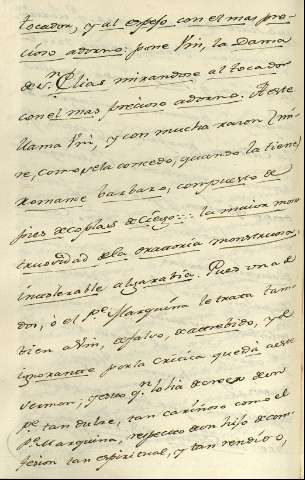 tocador, y al espejo con el mas pre-
cioso adorno: pone Vm, la Dama
de Sn. Elias mirandose al tocador
con el mas precioso adorno. A este
llama Vm, y con mucha razon (mi
re, como se la concedo, quando la tiene
romance barbaro, compuesto de
pies de coplas de Ciego::: la maior mons
truosidad de la oratoria monstruosa,
intolerable algarabia. Pues una de
dos, ò el Pe. Marquina le trata tam
bien a Vm, de falso, de atrebido, y de
ignorante por la critica que dà a este
sermon; y esto no lo hà de creer de un
Pe. tan dulze, tan cariñoso como el
Pe. Marquina, respecto de un hijo de con-
fesion tan espiritual, y tan rendido,